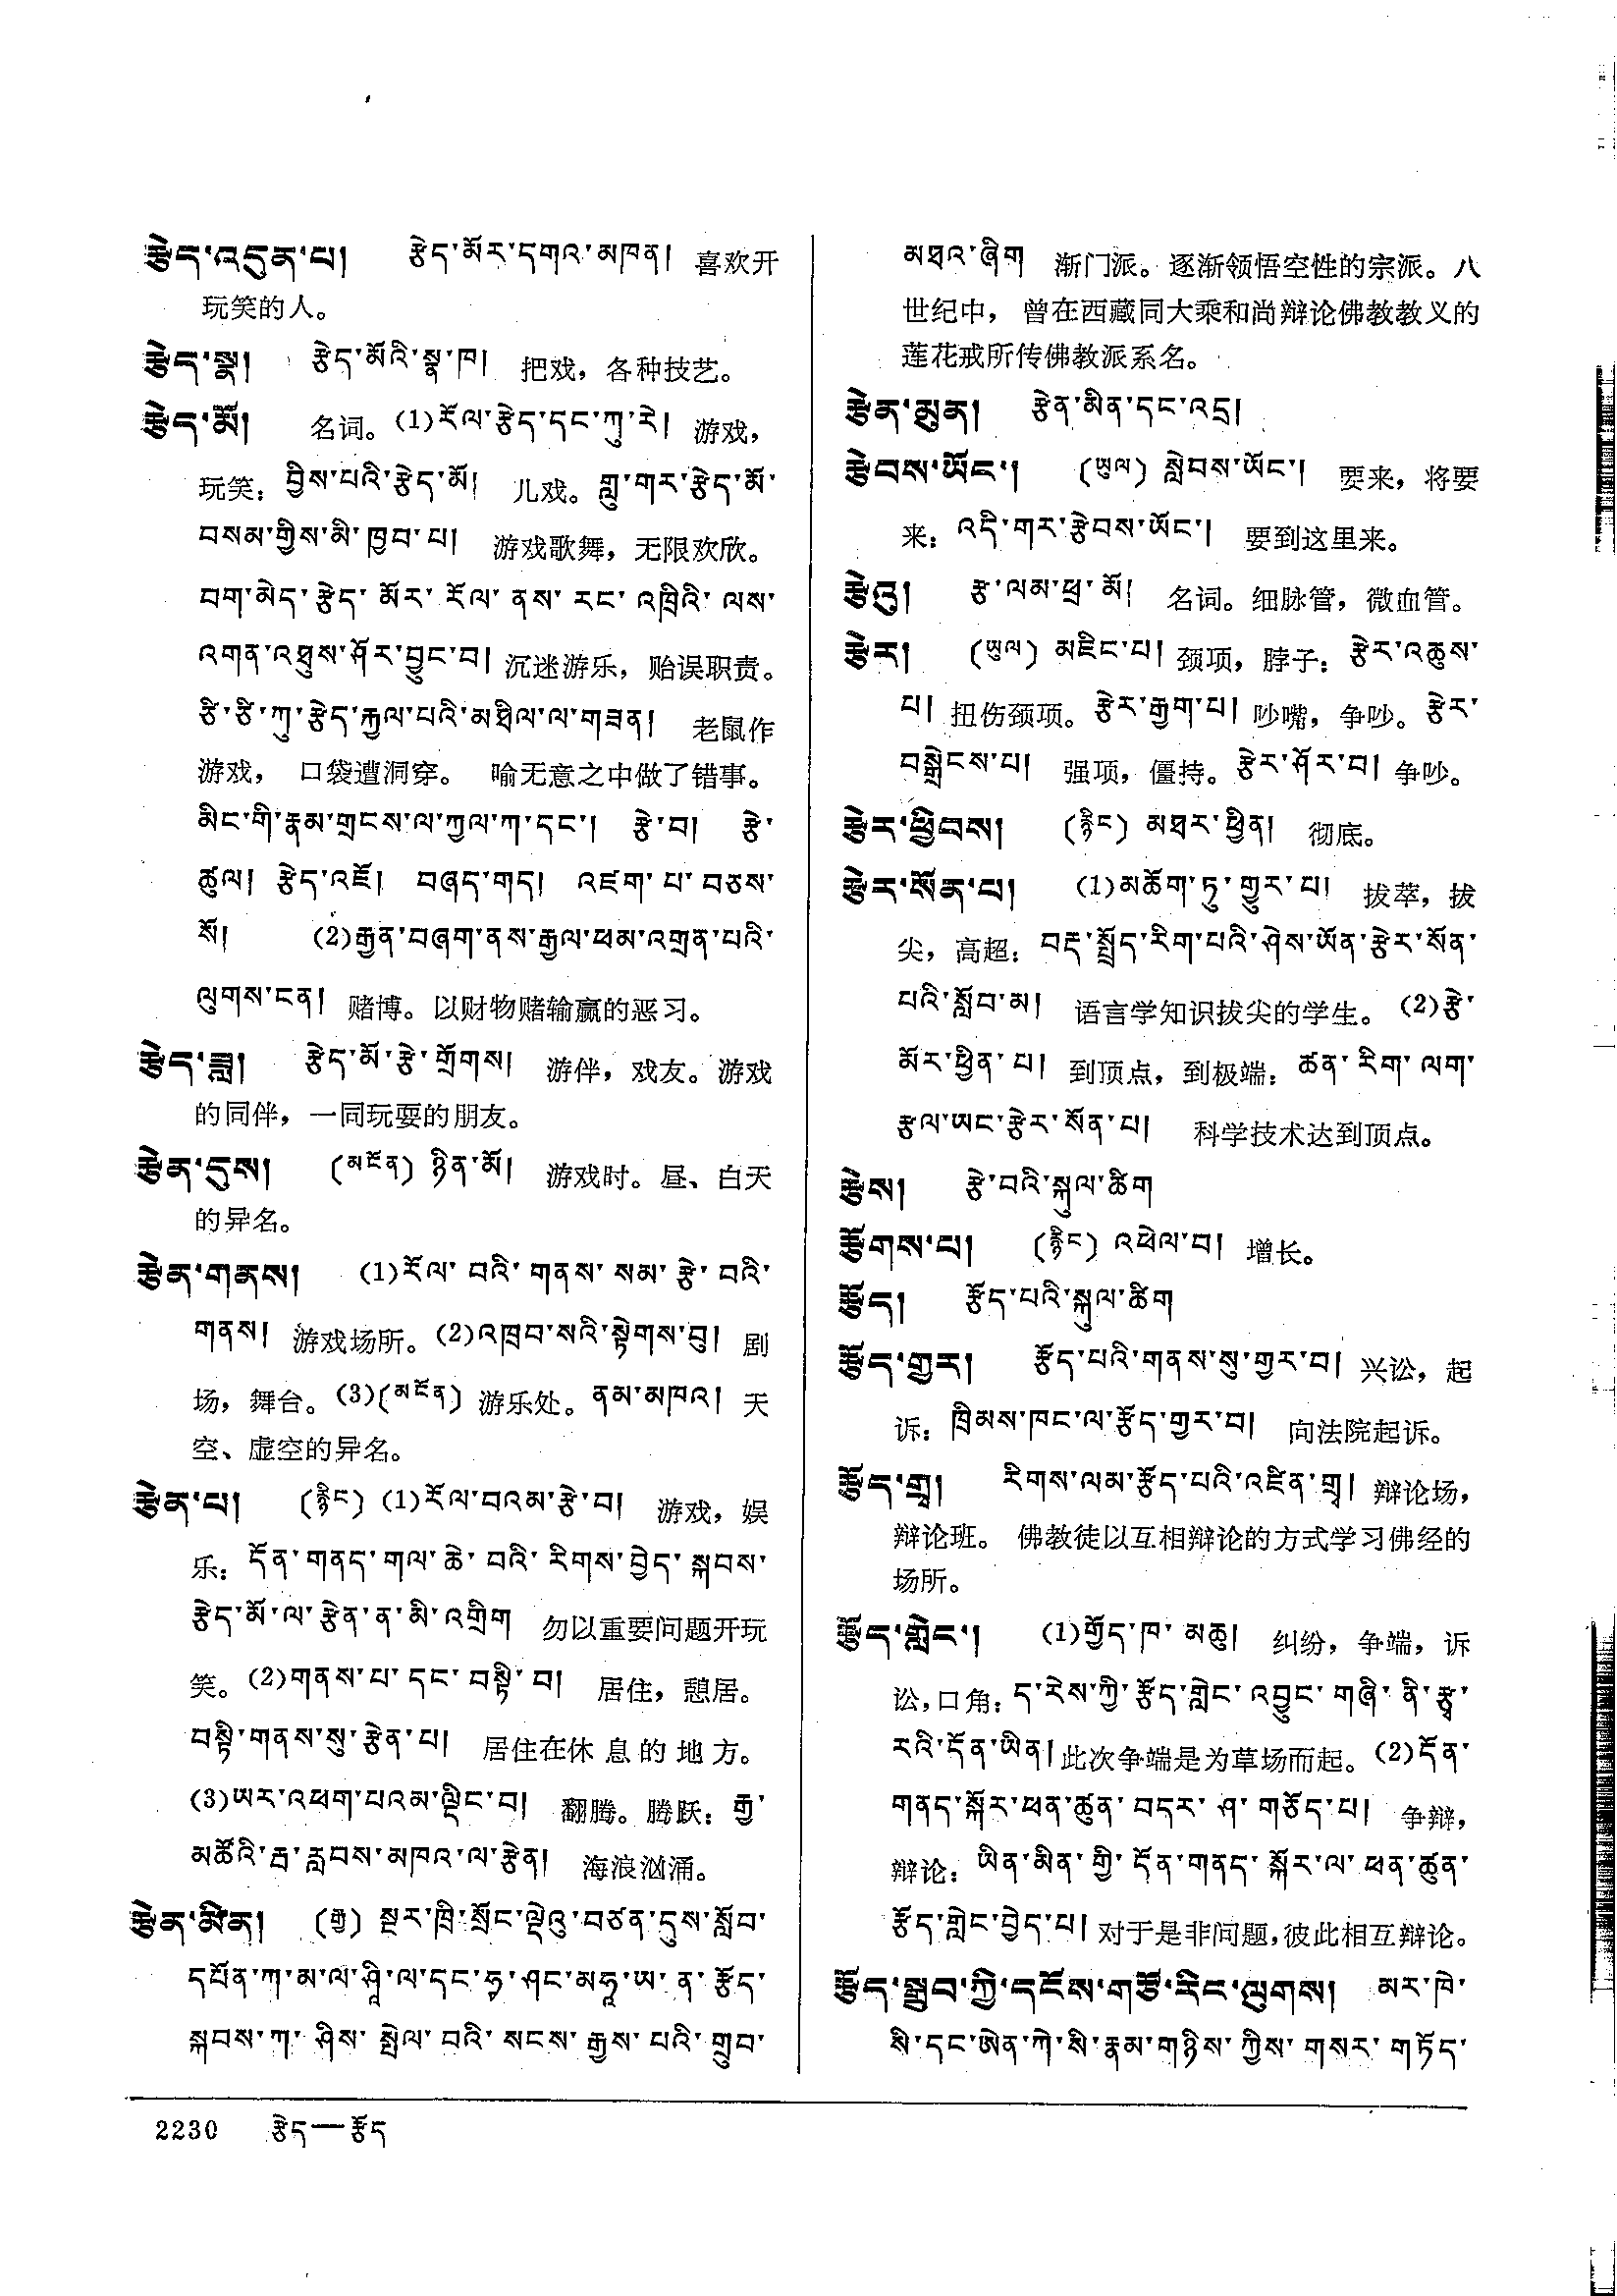 རྩེད་འདུན་པ། རྩེད་མོར་དགའ་མཁན། 喜欢开
玩笑的人。
རྩེད་སྣ། རྩེད་མོའི་སྣ་ཁ། 把戏，各种技艺。
རྩེད་མོ། 名词。(1)རོལ་རྩེད་དང་ཀུ་རེ། 游戏，
玩笑：བྱིས་པའི་རྩེད་མོ། 儿戏。གླུ་གར་རྩེད་མོ་
བསམ་གྱིས་མི་ཁྱབ་པ། 游戏歌舞，无限欢欣。
བག་མེད་རྩེད་མོར་རོལ་ནས་རང་འཁྲིའི་ལས་
འགན་འཐུས་ཤོར་བྱུང་བ། 沉迷游乐，贻误职责。
ཙི་ཙི་ཀུ་རྩེད་རྐྱལ་པའི་མཐིལ་ལ་གཟན། 老鼠作
游戏， 口袋遭洞穿。 喻无意之中做了错事。
མིང་གི་རྣམ་གྲངས་ལ་ཀྱལ་ཀ་དང་། རྩེ་བ། རྩེ་
ཚུལ། རྩེད་འཇོ། བཞད་གད། འཇག་པ་བཅས་
སོ། (2)རྒྱན་བཞག་ནས་རྒྱལ་ཕམ་འགྲན་པའི་
ལུགས་ངན། 赌博。以财物赌输赢的恶习。
རྩེད་ཟླ། རྩེད་མོ་རྩེ་གྲོགས། 游伴，戏友。游戏
的同伴，一同玩耍的朋友。
རྩེན་དུས། (མངོན) ཉིན་མོ། 游戏时。昼、白天
的异名。
རྩེན་གནས། (1)རོལ་བའི་གནས་སམ་རྩེ་བའི་
གནས། 游戏场所。(2)འཁྲབ་སའི་སྟེགས་བུ། 剧
场，舞台。(3)(མངོན) 游乐处。ནམ་མཁའ། 天
空、虚空的异名。
རྩེན་པ། (རྙིང) (1)རོལ་བའམ་རྩེ་བ། 游戏，娱
乐：དོན་གནད་གལ་ཆེ་བའི་རིགས་བྱེད་སྐབས་
རྩེད་མོ་ལ་རྩེན་ན་མི་འགྲིག 勿以重要问题开玩
笑。(2)གནས་པ་དང་བསྟི་བ། 居住，憩居。
བསྟི་གནས་སུ་རྩེན་པ། 居住在休息的地方。
(3)ཡར་འཕག་པའམ་ལྡིང་བ། 翻腾。腾跃：རྒྱ་
མཚོའི་རྦ་རླབས་མཁའ་ལ་རྩེན། 海浪汹涌。
རྩེན་མིན། (རྒྱ) སྔར་ཁྲི་སྲོང་ལྡེའུ་བཙན་དུས་སློབ་
དཔོན་ཀ་མ་ལ་ཤཱི་ལ་དང་ཧྭ་ཤང་མཧཱ་ཡ་ན་རྩོད་
སྐབས་ཀ་ཤིས་སྤེལ་བའི་སངས་རྒྱས་པའི་གྲུབ་
མཐའ་ཞིག 渐门派。逐渐领悟空性的宗派。八
世纪中， 曾在西藏同大乘和尚辩论佛教教义的
莲花戒所传佛教派系名。
རྩེན་མུན། རྩེན་མིན་དང་འདྲ།
རྩེབས་ཡོང་། (ཡུལ) སླེབས་ཡོང་། 要来，将要
来：འདི་གར་རྩེབས་ཡོང་། 要到这里来。
རྩེའུ། རྩ་ལམ་ཕྲ་མོ། 名词。细脉管，微血管。
རྩེར། (ཡུལ) མཇིང་པ། 颈项，脖子：རྩེར་འཆུས་
པ། 扭伤颈项。རྩེར་རྒྱག་པ། 吵嘴，争吵。རྩེར་
བསྒྲེངས་པ། 强项，僵持。རྩེར་ཤོར་བ། 争吵。
རྩེར་ཕྱིབས། (རྙིང) མཐར་ཕྱིན། 彻底。
རྩེར་སོན་པ། (1)མཆོག་ཏུ་གྱུར་པ། 拔萃，拔
尖，高超：བརྡ་སྤྲོད་རིག་པའི་ཤེས་ཡོན་རྩེར་སོན་
པའི་སློབ་མ། 语言学知识拔尖的学生。(2)རྩེ་
མོར་ཕྱིན་པ། 到顶点，到极端：ཚན་རིག་ལག་
རྩལ་ཡང་རྩེར་སོན་པ། 科学技术达到顶点。
རྩེས། རྩེ་བའི་སྐུལ་ཚིག
རྩོགས་པ། (རྙིང) འཕེལ་བ། 增长。
རྩོད། རྩོད་པའི་སྐུལ་ཚིག
རྩོད་གྱར། རྩོད་པའི་གནས་སུ་གྱར་བ། 兴讼，起
诉：ཁྲིམས་ཁང་ལ་རྩོད་གྱར་བ། 向法院起诉。
རྩོད་གྲྭ། རིགས་ལམ་རྩོད་པའི་འཛིན་གྲྭ། 辩论场，
辩论班。 佛教徒以互相辩论的方式学习佛经的
场所。
རྩོད་གླེང་། (1)གྱོད་ཁ་མཆུ། 纠纷，争端，诉
讼，口角：ད་རེས་ཀྱི་རྩོད་གླེང་འབྱུང་གཞི་ནི་རྩྭ་
རའི་དོན་ཡིན། 此次争端是为草场而起。(2)དོན་
གནད་སྐོར་ཕན་ཚུན་བདར་ཤ་གཅོད་པ། 争辩，
辩论：ཡིན་མིན་གྱི་དོན་གནད་སྐོར་ལ་ཕན་ཚུན་
རྩོད་གླེང་བྱེད་པ། 对于是非问题，彼此相互辩论。
རྩོད་སྒྲུབ་ཀྱི་དངོས་གཙོ་རིང་ལུགས། མར་ཁེ་
སི་དང་ཨེན་ཀེ་སི་རྣམ་གཉིས་ཀྱིས་གསར་གཏོད་
2230 རྩེད—རྩོད